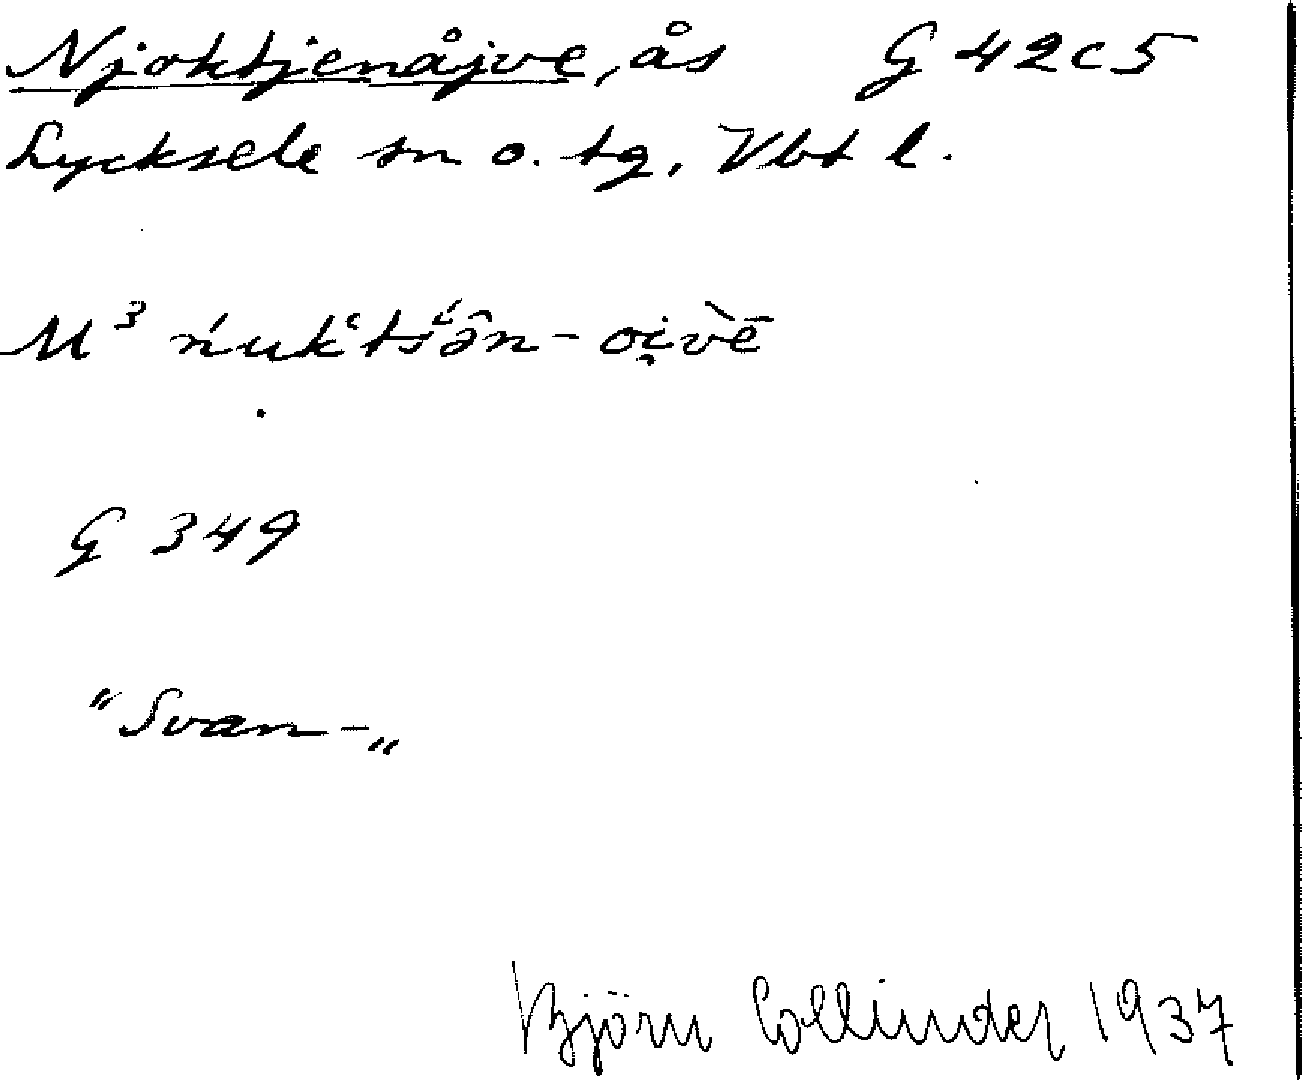 Njoktjenåjve, ås G 42c5
Lycksele sn o. tg, Vbt l.
M³ ńukʿtśʿân-oi̯vē
G 349
"Svan-„
Björn Collinder 1937